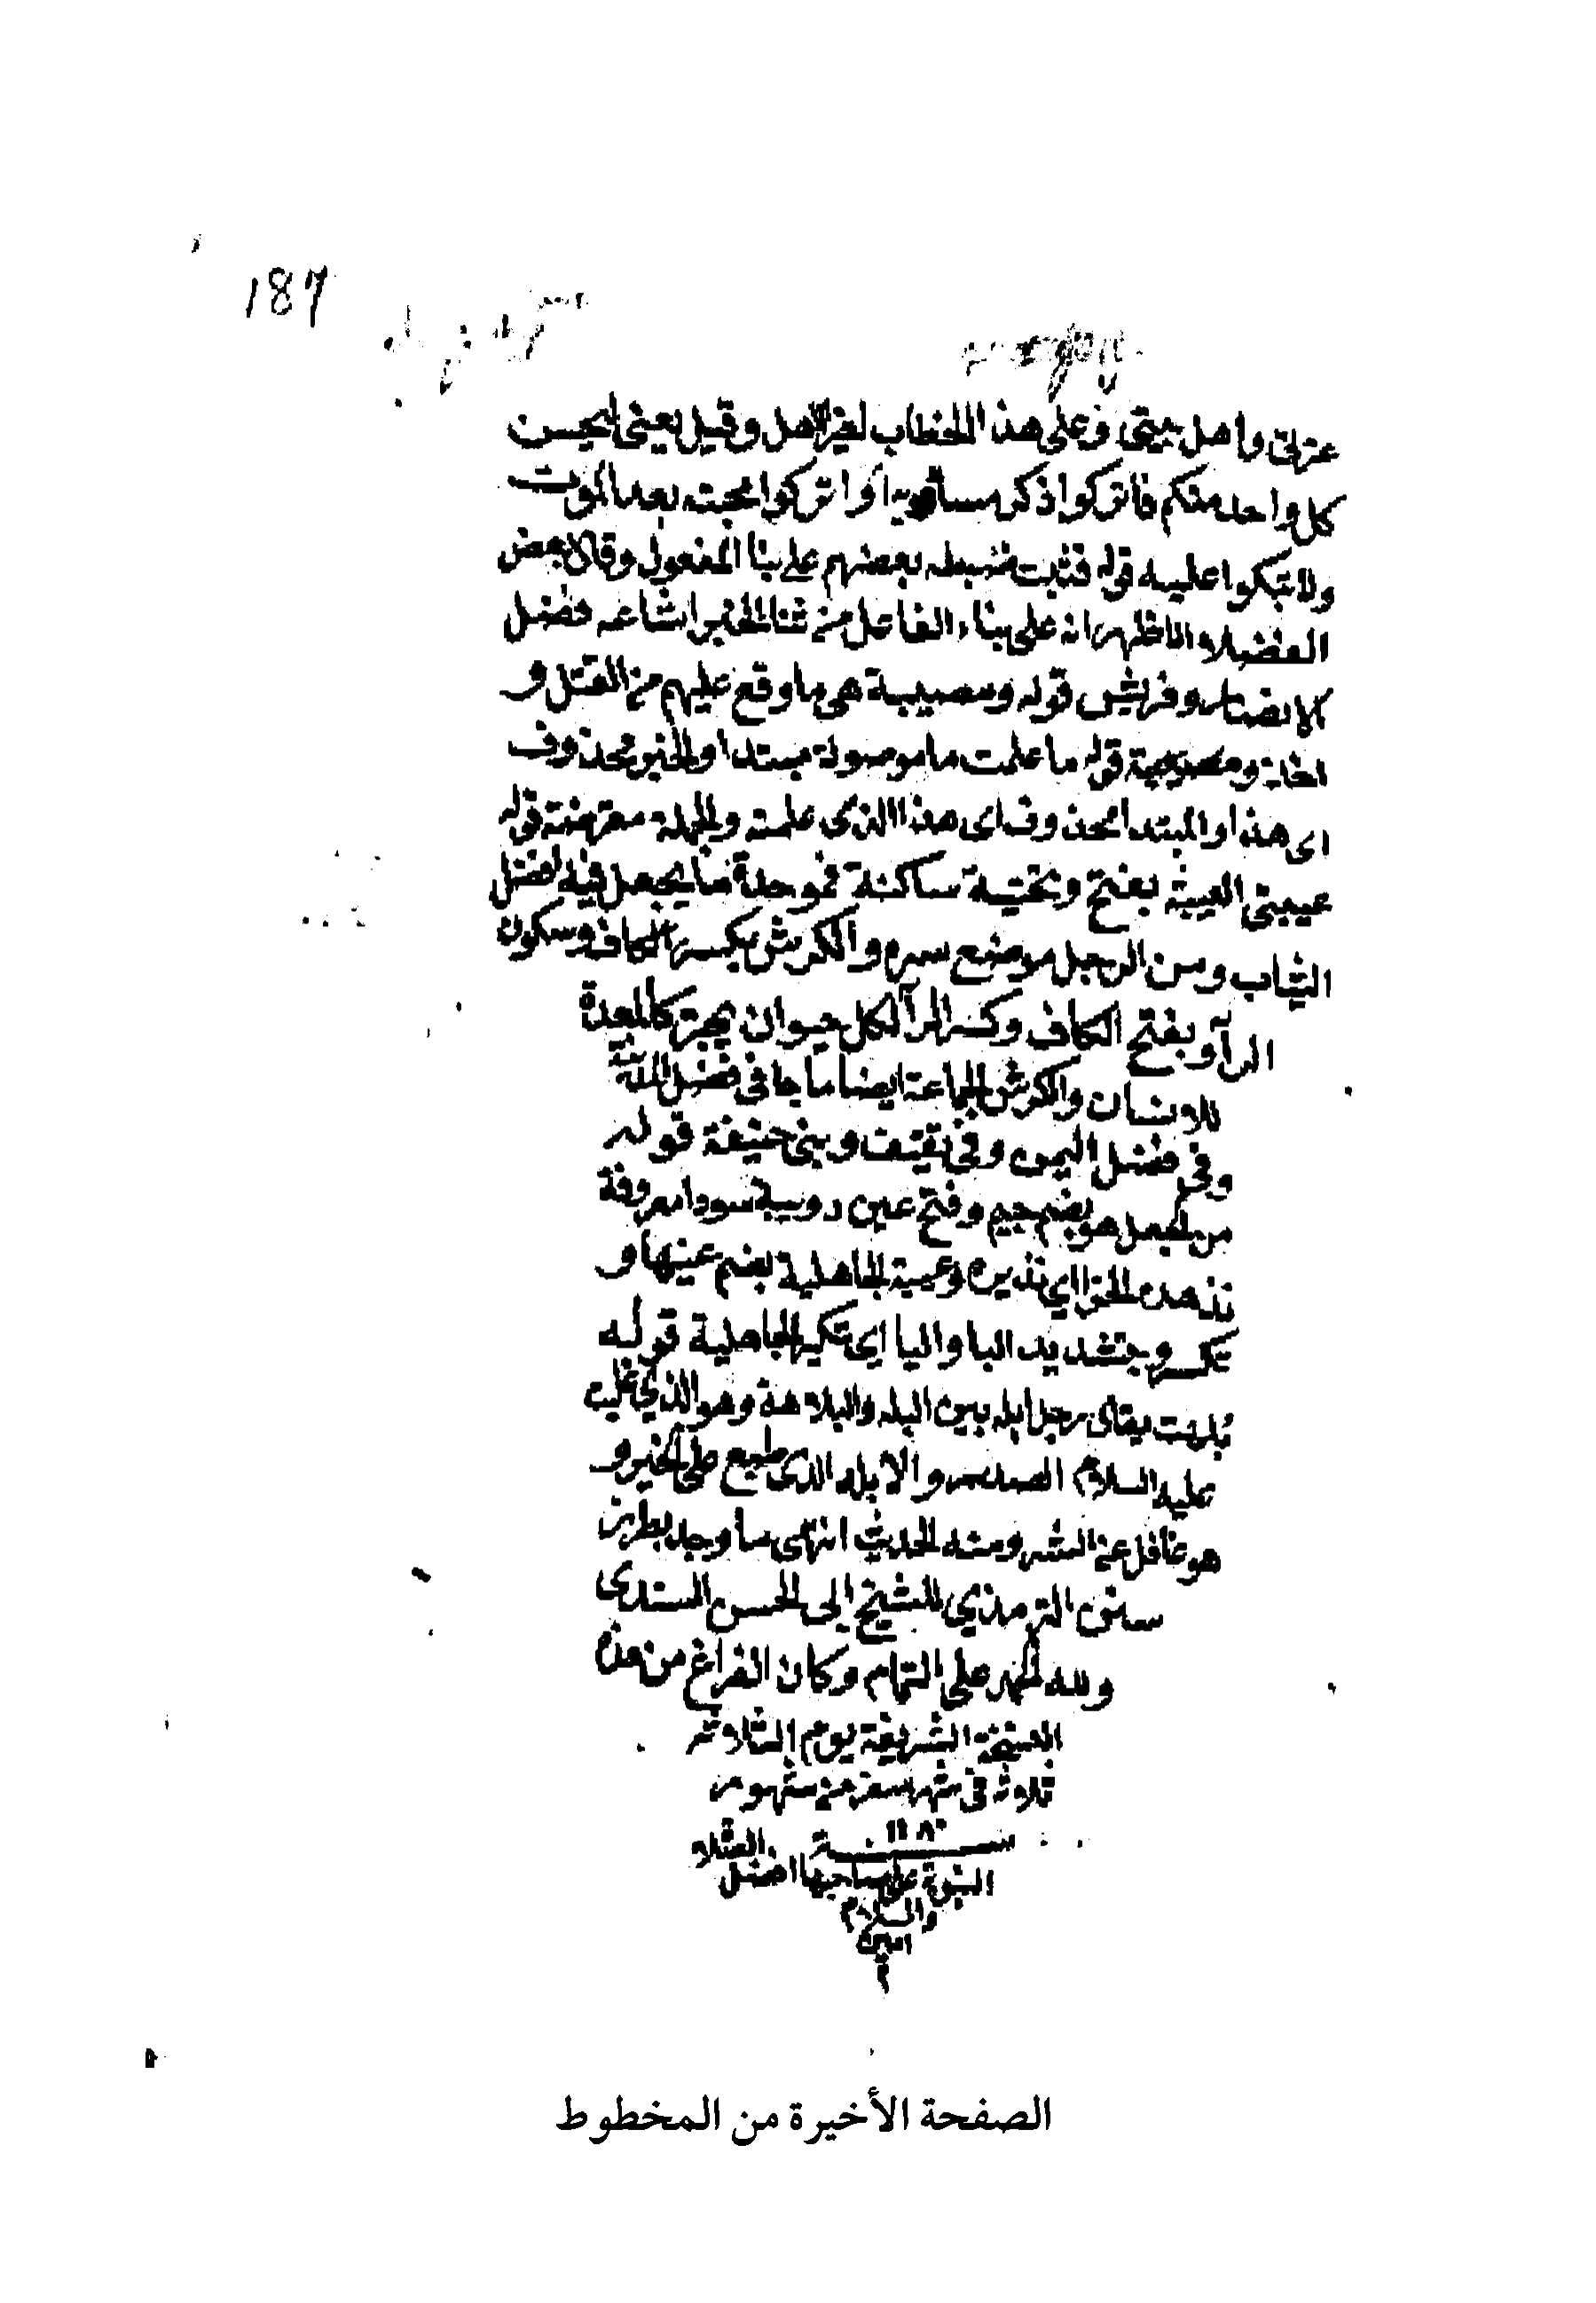 187
عترتي واهل بيتي وعلى هذا الخطاب لغير الاهل وقيل يعني ليحسن
كل واحد منكم فاتركوا ذكر مساويه او اتركوا محبته بعد الموت
ولا تبكوا عليه قوله فنثيت ضبطه بعضهم على بنا المفعول وقال بعض
الفضلاء الاظهر انه على بناء الفاعل من نثا الخبر اشاعه فضل
الانصار وقريش قوله ومصيبة هي ما وقع عليهم من القتل و
قوله ما علمت ما موصولة مبتدا والخبر محذوف
اى هذا او المبتدا محذوف اى هذا الذى علمته والجملة معترضة قوله
عيبتي العيبة بفتح وتحتية ساكنة فموحدة ما يجعل فيه افضل
الثياب ومن الرجل موضع سره والكرش بكسر الكاف وسكون
الرآ وبفتح الكاف وكسر الرآ لكل حيوان يجتر كالمعدة
للانسان والكرش الجماعة ايضا ما جا في فضل
وفي فضل اليمن وفي ثقيف وبني حنيفة قوله
من الجعل هو بضم جيم وفتح عين دويبة سودا معروفة
تدهده الخرا اي تديره وعبية الجاهلية بضم عينها و
تكسر وبتشديد البا واليا اى تكبر الجاهلية قوله
بلهت يقال رجل ابله بين البله والبلاهة وهو الذي غلبت
عليه السلام الصدر والابله الذى طبع على الخير و
هو غافل عن الشر ومنه الحديث انتهى ما وجد بطرز
سنن الترمذي للشيخ ابي الحسن السندى
ولله الحمد على التمام وكان الفراغ من هذه
النسخة الشريفة يوم الثلاثه
ثلاثه في شهر صفر من شهور
سنة ١١٨٢
النبوية على صاحبها افضل الصلاة
والسلام
امين
م
الصفحة الأخيرة من المخطوط